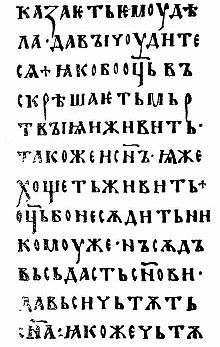 КАЗАѤТЬѤМОУДѢ
ЛА·ДАВЪІЧОУДИТЕ
СѦ+ꙖКОБООЦ҃ЬВЪ
СКРѢШАѤТЬМЬР
ТВЪІѨИЖИВИТЬ·
ТАКОЖЕИСН҃Ъ·ѨЖЕ
ХОЩЕТЬЖИВИТЬ+
ОЦ҃ЬБОНЕСѪДИТЬНИ
КОМОУЖЕ·НЪСѪДЪ
ВЬСЬДАСТЬСН҃ОВИ·
ДАВЬСИЧЬТѪТЬ
СН҃А:ꙖКОЖЕЧЬТѪ